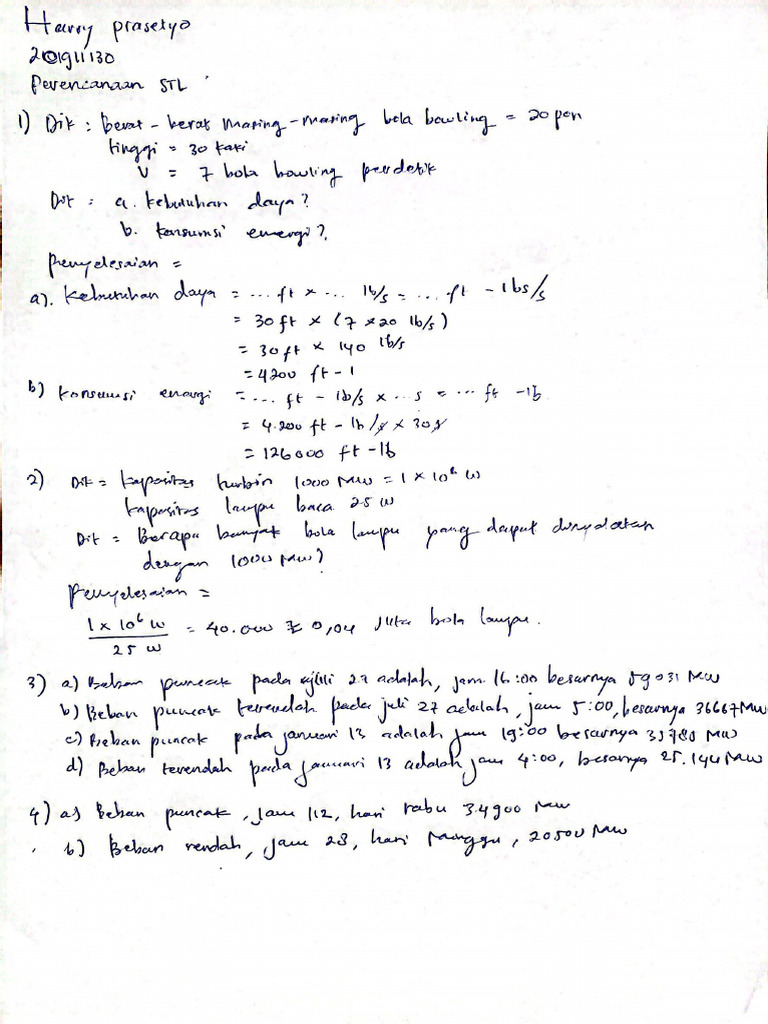 Harry prasetyo
201911130
Perencanaan STL
1) Dik : Berat - berat masing - masing bola bowling = 20 pon
tinggi = 30 kaki
V = 7 bola bowling perdetik
Dit : a. kebutuhan daya?
b. konsumsi energi?
Penyelesaian =
a). Kebutuhan daya = ... ft x ... lb/s = ... ft - lbs/s
= 30 ft x (7 x 20 lb/s)
= 30 ft x 140 lb/s
= 4200 ft - 1
b) konsumsi energi = ... ft - lb/s x ... s = ... ft - lb
= 4.200 ft - lb/s x 30 s
= 126000 ft - lb
2) Dik = kapasitas turbin 1000 MW = 1 x 10⁶ W
kapasitas lampu baca 25 W
Dit = Berapa banyak bola lampu yang dapat dinyalakan
dengan 1000 MW?
Penyelesaian =
1 x 10⁶ W
25 W
= 40.000 0,04 Juta bola lampu.
3) a) Beban puncak pada juli 27 adalah, jam 16:00 besarnya 59031 MW
b) Beban puncak terendah pada juli 27 adalah, jam 5:00, besarnya 36667 MW
c) Beban puncak pada januari 13 adalah jam 19:00 besarnya 35780 MW
d) Beban terendah pada januari 13 adalah jam 4:00, besarnya 25.144 MW
4) a) Beban puncak, jam 112, hari rabu 34900 MW
b) Beban rendah, jam 28, hari Minggu, 20500 MW